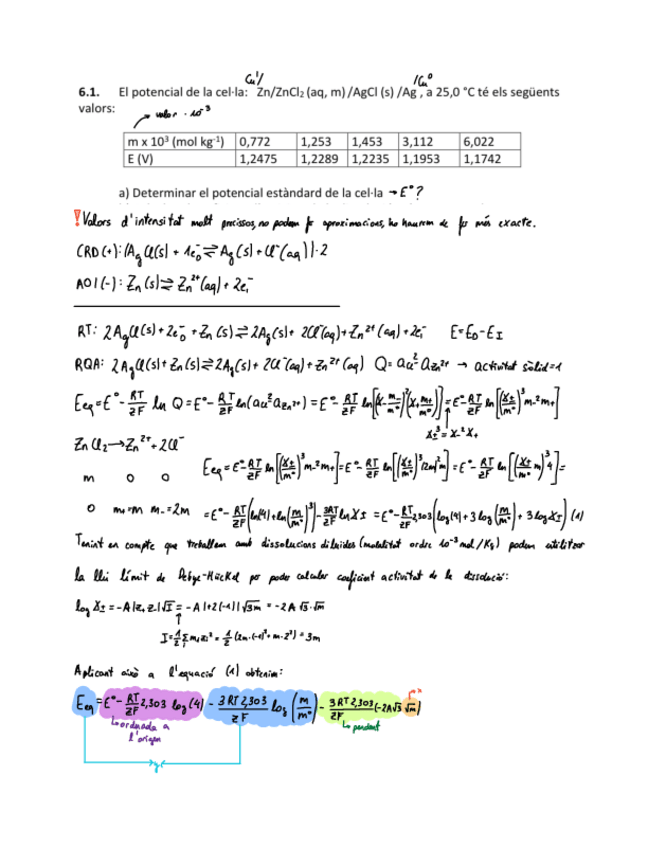 Cu'/ /Cu⁰
6.1. El potencial de la cel·la: Zn/ZnCl₂ (aq, m) /AgCl (s) /Ag , a 25,0 °C té els següents
valors: valor · 10⁻³
m x 10³ (mol kg⁻¹) 0,772 1,253 1,453 3,112 6,022
E (V) 1,2475 1,2289 1,2235 1,1953 1,1742
a) Determinar el potencial estàndard de la cel·la → E°?
! Valors d'intensitat molt precissos, no podem fer aproximacions, ho haurem de fer més exacte.
CRD (+): (AgCl(s) + 1e⁻ ⇌ Ag(s) + Cl⁻(aq))·2
AOI (-): Zn(s) ⇌ Zn²⁺(aq) + 2e⁻
RT: 2AgCl(s) + 2e⁻ + Zn(s) ⇌ 2Ag(s) + 2Cl⁻(aq) + Zn²⁺(aq) + 2e⁻ E = E_D - E_I
RQA: 2AgCl(s) + Zn(s) ⇌ 2Ag(s) + 2Cl⁻(aq) + Zn²⁺(aq) Q = a_Cl² a_Zn²⁺ → activitat sòlid = 1
Eeq = E° - RT/2F ln Q = E° - RT/2F ln(a_Cl² a_Zn²⁺) = E° - RT/2F ln[(γ₋ m₋/m°)²(γ₊ m₊/m°)] = E° - RT/2F ln[(γ±/m°)³ m₋² m₊]
γ±³ = γ₋² γ₊
ZnCl₂ → Zn²⁺ + 2Cl⁻
m 0 0 Eeq = E° - RT/2F ln[(γ±/m°)³ m₋² m₊] = E° - RT/2F ln[(γ±/m°)³ (2m)² m] = E° - RT/2F ln[(γ±/m° m)³ 4] =
0 m₊=m m₋=2m = E° - RT/2F (ln(4) + ln(m/m°)³) - 3RT/2F ln γ± = E° - RT/2F 2,303 (log(4) + 3 log(m/m°) + 3 log γ±) (1)
Tenint en compte que treballem amb dissolucions diluides (molalitat ordre 10⁻³ mol/Kg) podem utilitzar
la llei límit de Debye-Hückel per poder calcular coeficient activitat de la dissolució:
log γ± = -A |z₊ z₋| √I = -A |+2(-1)| √3m = -2A √3 · √m
I = 1/2 Σ mᵢ zᵢ² = 1/2 (2m·(-1)² + m·2²) = 3m
Aplicant això a l'equació (1) obtenim:
Eeq = E° - RT/2F 2,303 log(4) - 3RT 2,303/2F log(m/m°) - 3RT 2,303/2F (-2A√3 √m) → x
↳ ordenada a ↳ pendent
l'origen
y